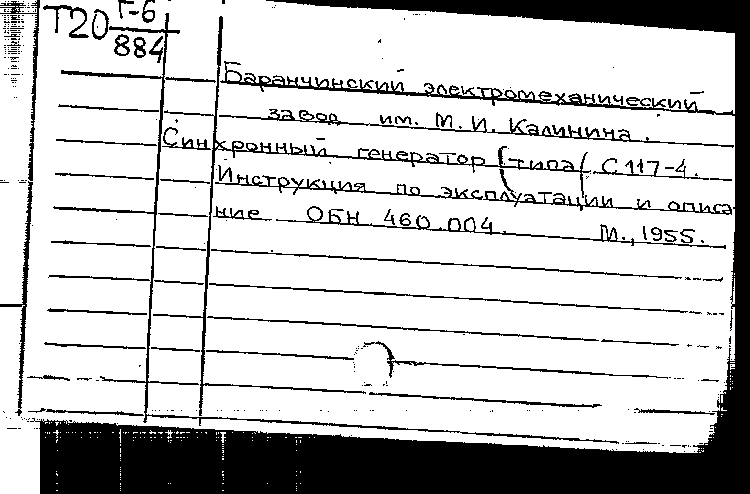 Т20 Г-6
884
Баранчинский электромеханический
завод им. М. И. Калинина.
Синхронный генератор (типа( С 117-4.
Инструкция по эксплуатации и описа
ние ОБН 460.004. М., 1955.